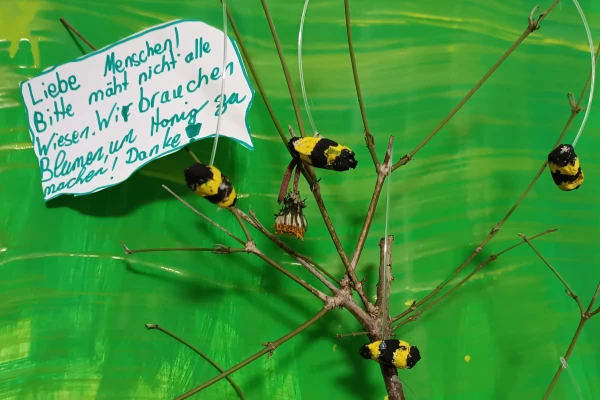 Liebe Menschen!
Bitte mäht nicht alle
Wiesen. Wir brauchen
Blumen, um Honig zu
machen! Danke